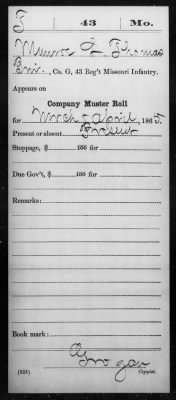 T | 43 | Mo.
Munroe L. Thomas
Pvt., Co. G, 43 Reg't Missouri Infantry.
Appears on
Company Muster Roll
for March & April, 1865.
Present or absent Present
Stoppage, $ 100 for
Due Gov't, $ 100 for
Remarks:
Book mark:
Grogan
(358) Copyist.